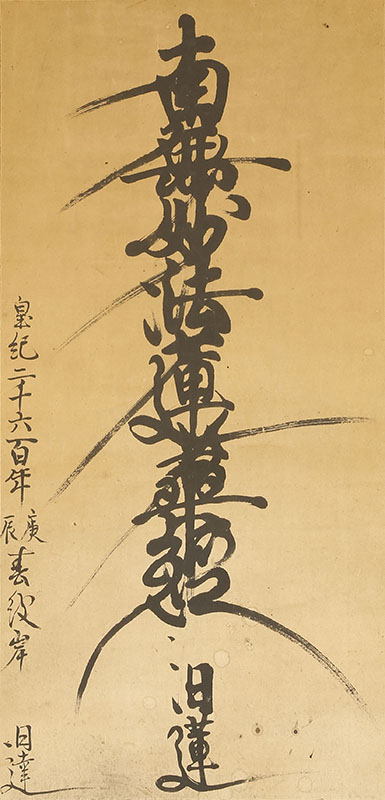 南無妙法蓮華経
日蓮
皇紀二千六百年
庚辰
春彼岸
日達